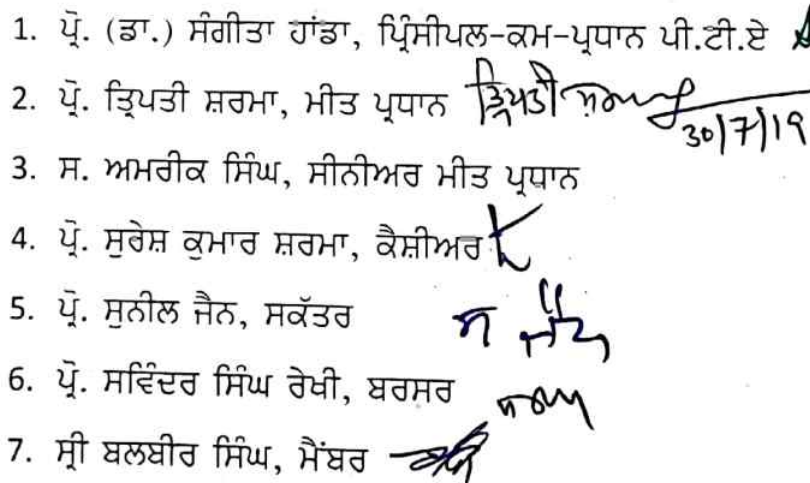 1. ਪ੍ਰੋ. (ਡਾ.) ਸੰਗੀਤਾ ਹਾਂਡਾ, ਪ੍ਰਿੰਸੀਪਲ-ਕਮ-ਪ੍ਰਧਾਨ ਪੀ.ਟੀ.ਏ
2. ਪ੍ਰੋ. ਤ੍ਰਿਪਤੀ ਸ਼ਰਮਾ, ਮੀਤ ਪ੍ਰਧਾਨ ਤ੍ਰਿਪਤੀ ਸ਼ਰਮਾ
30/7/19
3. ਸ. ਅਮਰੀਕ ਸਿੰਘ, ਸੀਨੀਅਰ ਮੀਤ ਪ੍ਰਧਾਨ
4. ਪ੍ਰੋ. ਸੁਰੇਸ਼ ਕੁਮਾਰ ਸ਼ਰਮਾ, ਕੈਸ਼ੀਅਰ
5. ਪ੍ਰੋ. ਸੁਨੀਲ ਜੈਨ, ਸਕੱਤਰ ਸ ਜੈਨ
6. ਪ੍ਰੋ. ਸਵਿੰਦਰ ਸਿੰਘ ਰੇਖੀ, ਬਰਸਰ
7. ਸ੍ਰੀ ਬਲਬੀਰ ਸਿੰਘ, ਮੈਂਬਰ